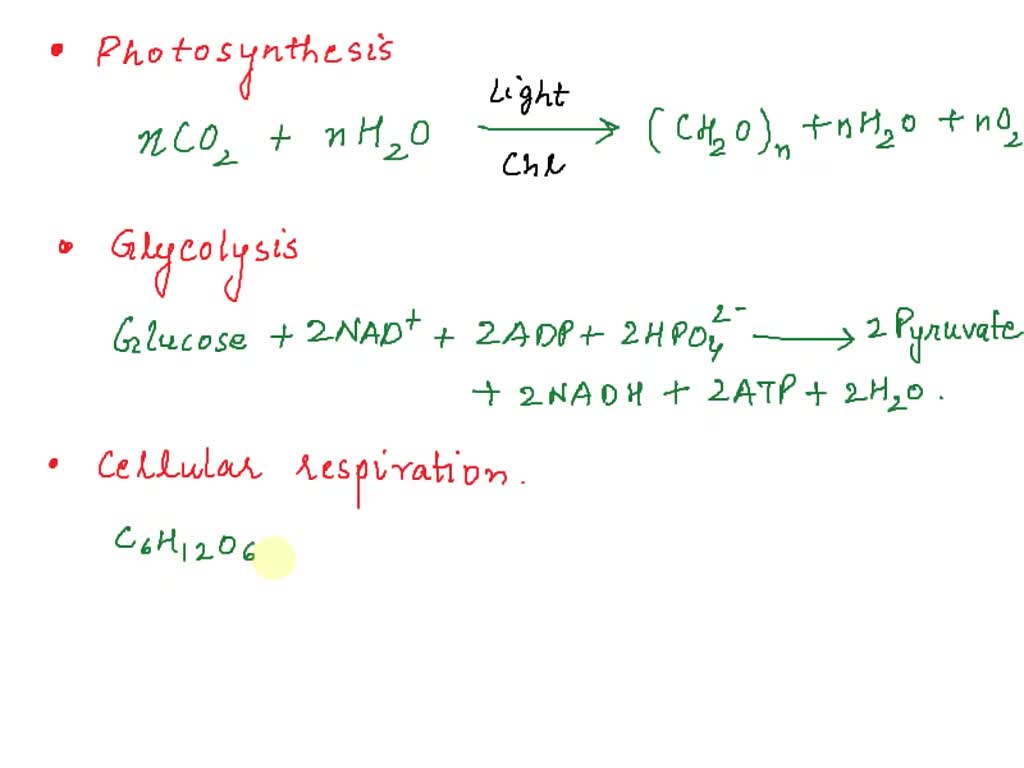 • Photosynthesis
nCO₂ + nH₂O —Light/Chl→ (CH₂O)ₙ + nH₂O + nO₂
• Glycolysis
Glucose + 2NAD⁺ + 2ADP + 2HPO₄²⁻ ⟶ 2 Pyruvate
+ 2NADH + 2ATP + 2H₂O.
• Cellular respiration.
C₆H₁₂O₆